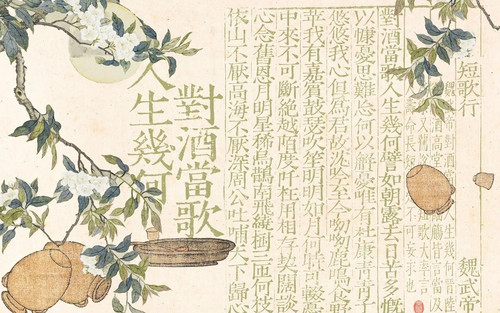 短歌行
魏武帝
對酒當歌人生幾何譬如朝露去日苦多慨
以慷憂思難忘何以解憂唯有杜康青青子
悠悠我心但爲君故沈吟至今呦呦鹿鳴食野
苹我有嘉賓鼓瑟吹笙明明如月何時可輟
中來不可斷絕越陌度阡枉用相存契闊談
心念舊恩月明星稀烏鵲南飛繞樹三匝何枝
依山不厭高海不厭深周公吐哺天下歸心
對酒當歌
人生幾何